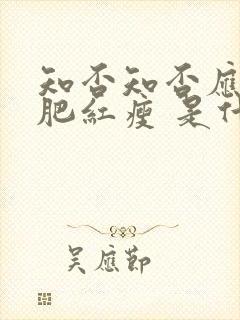 知否知否應
肥紅瘦 是什
吴應節